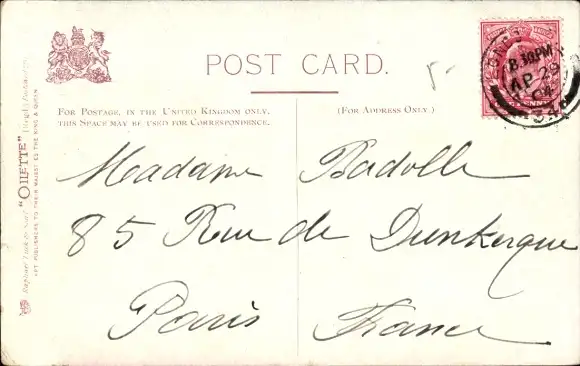 POST CARD.
FOR POSTAGE, IN THE UNITED KINGDOM ONLY,
THIS SPACE MAY BE USED FOR CORRESPONDENCE.
(FOR ADDRESS ONLY.)
Madame Badolle
85 Rue de Dunkerque
Paris France
Raphael Tuck & Sons' "OILETTE" [Regd.] Postcard
ART PUBLISHERS TO THEIR MAJESTIES THE KING & QUEEN
8.30PM
AP 29
04